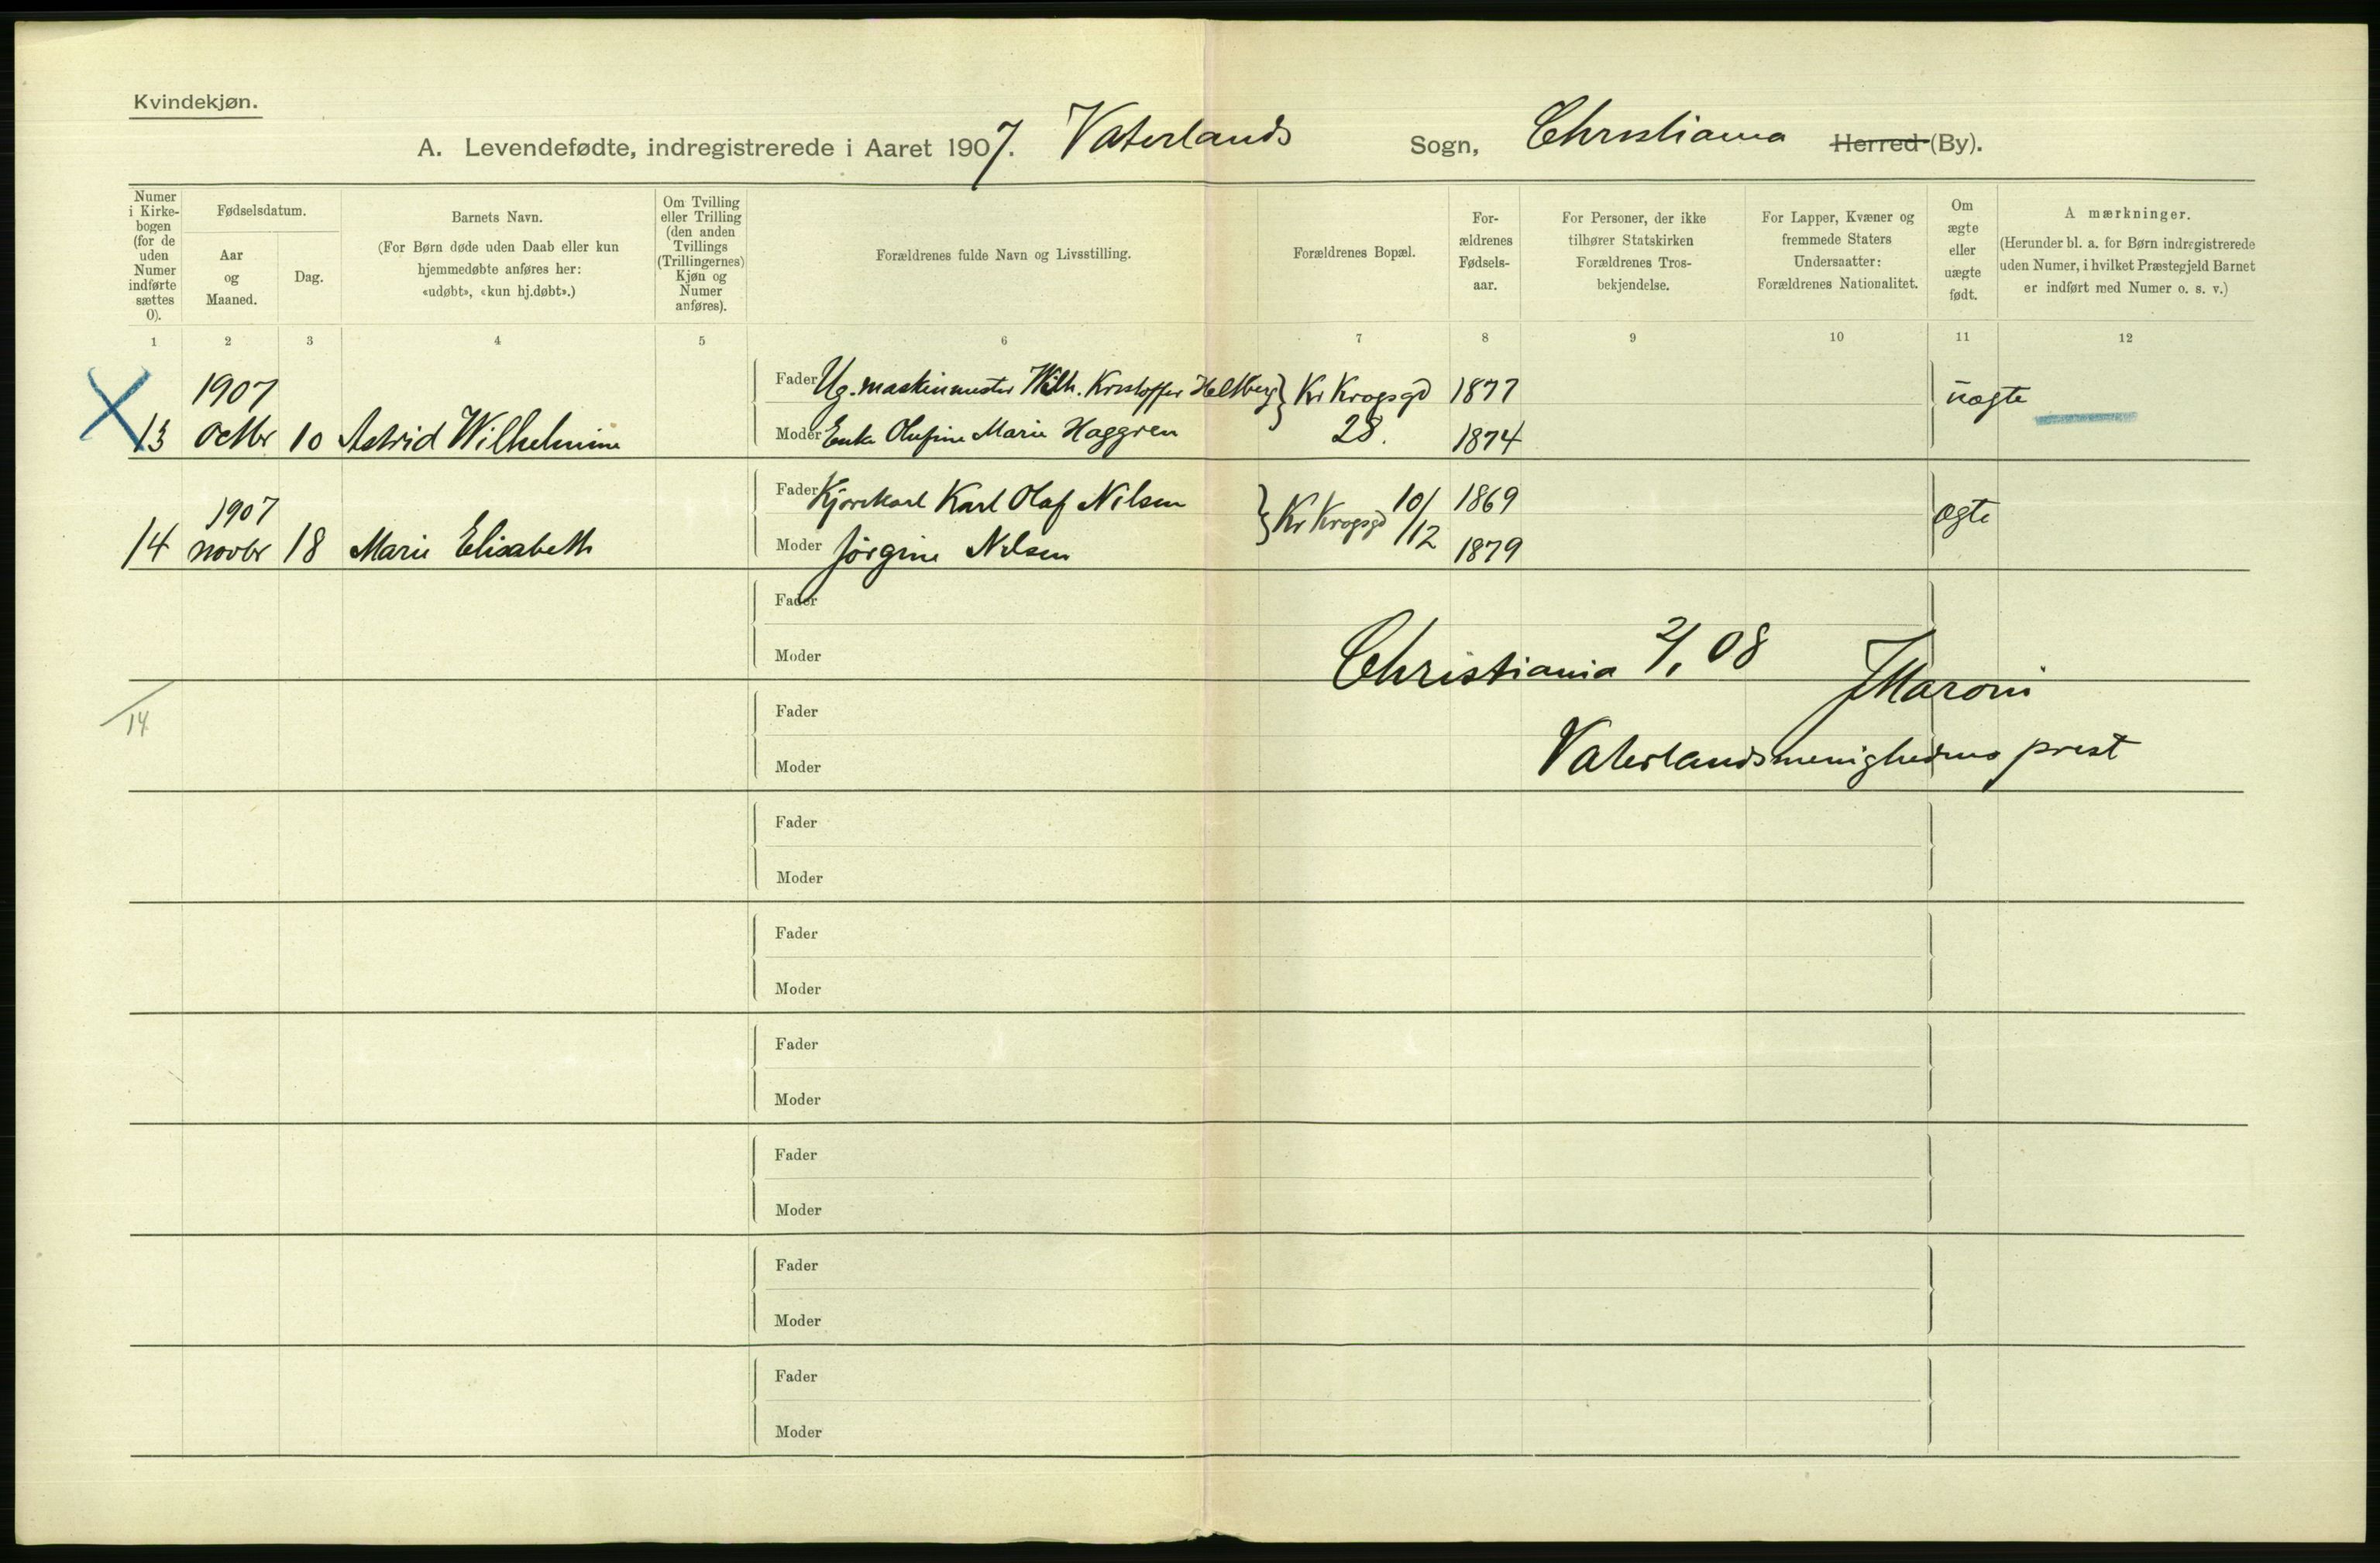 Kvindekjøn.
A. Levendefødte, indregistrerede i Aaret 1907. Vaterlands Sogn, Christiania Herred (By).
Numer i Kirkebogen (for de uden Numer indførte sættes 0).
Fødselsdatum.
Aar og Maaned.
Dag.
Barnets Navn.
(For Børn døde uden Daab eller kun hjemmedøbte anføres her: «udøbt», «kun hj.døbt».)
Om Tvilling eller Trilling (den anden Tvillings (Trillingernes) Kjøn og Numer anføres).
Forældrenes fulde Navn og Livsstilling.
Forældrenes Bopæl.
Forældrenes Fødselsaar.
For Personer, der ikke tilhører Statskirken Forældrenes Trosbekjendelse.
For Lapper, Kvæner og fremmede Staters Undersaatter: Forældrenes Nationalitet.
Om ægte eller uægte født.
Anmærkninger.
(Herunder bl. a. for Børn indregistrerede uden Numer, i hvilket Præstegjeld Barnet er indført med Numer o. s. v.)
1 2 3 4 5 6 7 8 9 10 11 12
13 1907 Octbr 10 Astrid Wilhelmine
Fader Ug. maskinmester Wilh. Kristoffer Heltberg Kr Krogsgd 1877 uægte
Moder Enke Olufine Marie Haggren 28. 1874
14 1907 novbr 18 Marie Elisabeth
Fader Kjørekarl Karl Olaf Nilsen Kr Krogsgd 10/12 1869 ægte
Moder Jörgine Nilsen 1879
Fader
Moder
Christiania 2/1 08
JMaroni
Vaterlandsmenighedens prest
14
Fader
Moder
Fader
Moder
Fader
Moder
Fader
Moder
Fader
Moder
Fader
Moder
Fader
Moder